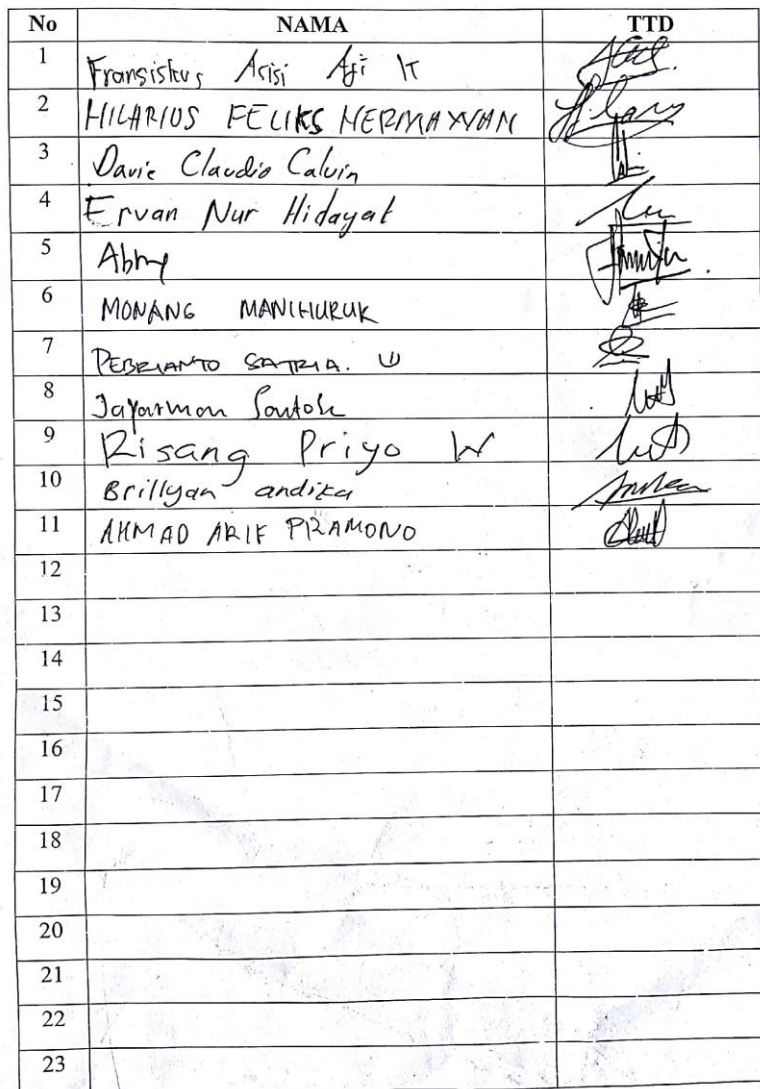 No NAMA TTD
1 Fransiskus Asisi Aji K
2 HILARIUS FELIKS HERMAWAN
3 Davie Claudio Calvin
4 Ervan Nur Hidayat
5 Abhy
6 MONANG MANIHURUK
7 PEBRIANTO SATRIA. U
8 Jayarmon
9 Risang Priyo W
10 Brillyan andika
11 AHMAD ARIF PRAMONO
12
13
14
15
16
17
18
19
20
21
22
23